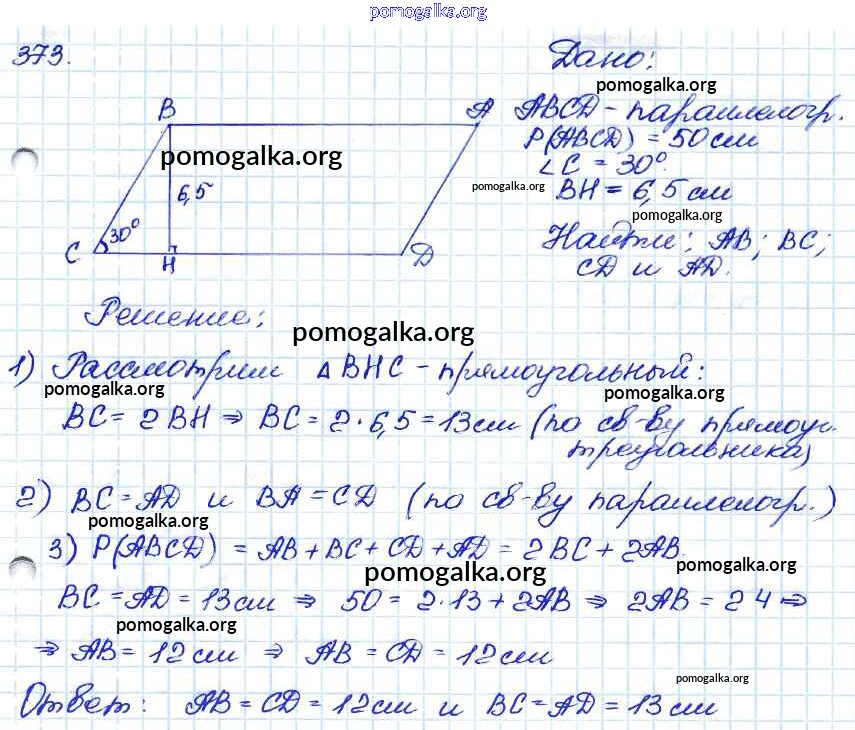 pomogalka.org
373.
Дано:
pomogalka.org
B
A
ABCD - параллелогр.
P(ABCD) = 50 см
pomogalka.org
∠C = 30°
pomogalka.org
6,5
BH = 6,5 см
pomogalka.org
30°
C
H
D
Найти: AB; BC;
CD и AD.
Решение:
pomogalka.org
1) Рассмотрим ΔBHC - прямоугольный:
pomogalka.org
pomogalka.org
BC = 2BH ⇒ BC = 2·6,5 = 13 см (по св-ву прямоуг.
треугольника)
2) BC = AD и BA = CD (по св-ву параллелогр.)
pomogalka.org
3) P(ABCD) = AB + BC + CD + AD = 2BC + 2AB.
pomogalka.org
pomogalka.org
BC = AD = 13 см ⇒ 50 = 2·13 + 2AB ⇒ 2AB = 24 ⇒
pomogalka.org
⇒ AB = 12 см ⇒ AB = CD = 12 см
pomogalka.org
Ответ: AB = CD = 12 см и BC = AD = 13 см